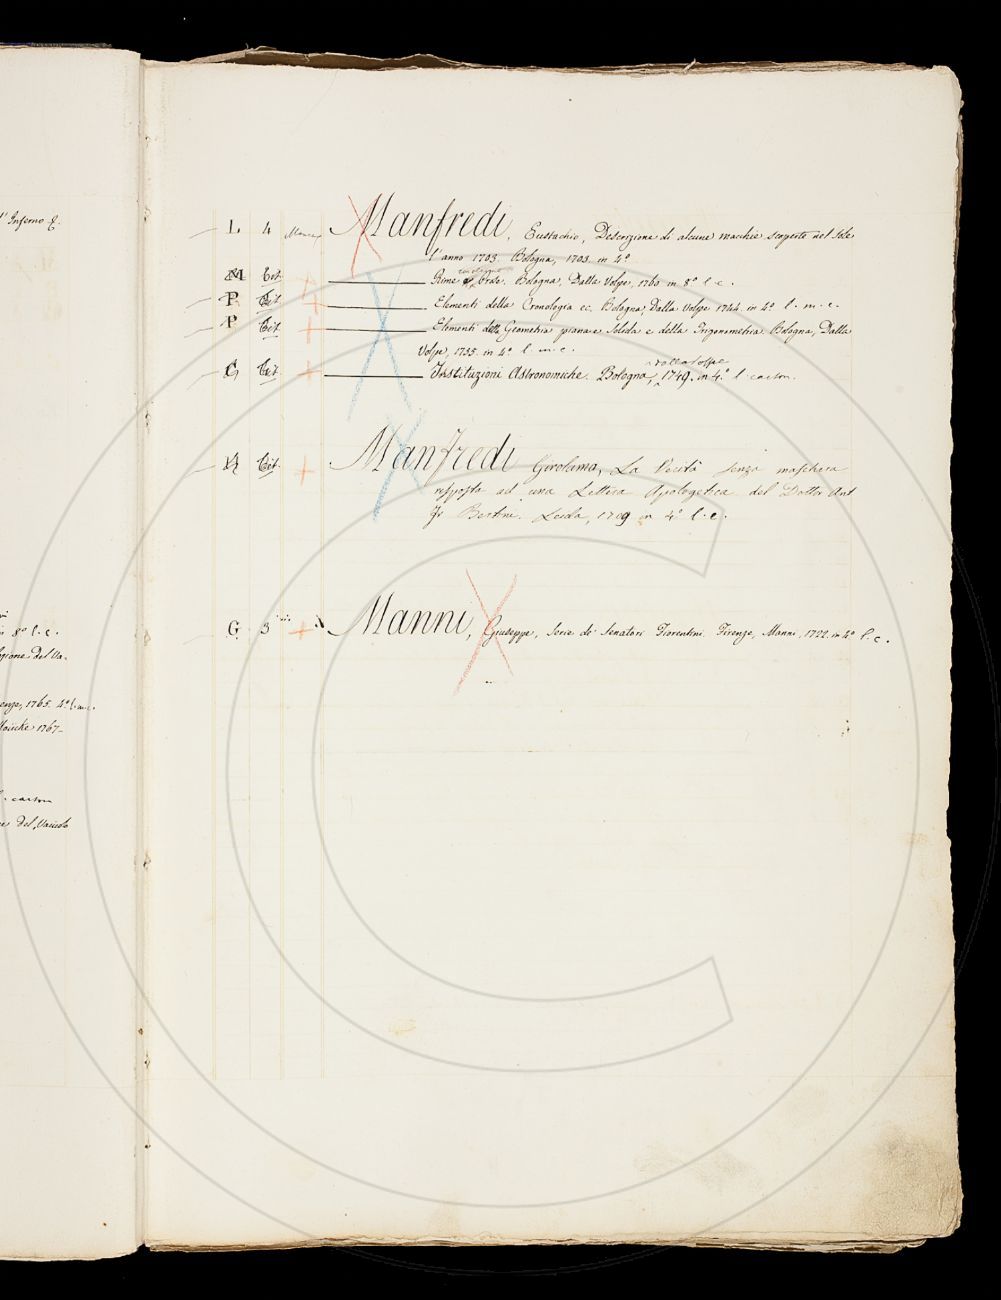 l'Inferno f.
L 4 Manca Manfredi, Eustachio, Descrizione di alcune macchie scoperte nel Sole
l'anno 1703. Bologna, 1703. in 4°
M Cit. Rime. Bologna, Dalla Volpe, 1760 in 8° l. c.
P Cit. Elementi della Cronologia ec. Bologna, Dalla Volpe 1744. in 4° l. m. c.
P Cit. Elementi della Geometria piana e Solida e della Trigonometria. Bologna, Dalla
Volpe, 1755. in 4° l. m. c.
dalla Volpe
C Cit. Instituzioni Astronomiche. Bologna, 1749. in 4.° l. carton.
Cit. Manfredi Girolamo, La Verità senza maschera
risposta ad una Lettera Apologetica del Dottor Ant
Fr Bertini. Leida, 1709 in 4° l. c.
G 3 Manni, Giuseppe, Serie de' Senatori Fiorentini. Firenze, Manni, 1722. in 4° l. c.
8° l. c.
del Va-
1765. 4° l. m. c.
Moücke 1767-
l. carton
del Vaiuolo